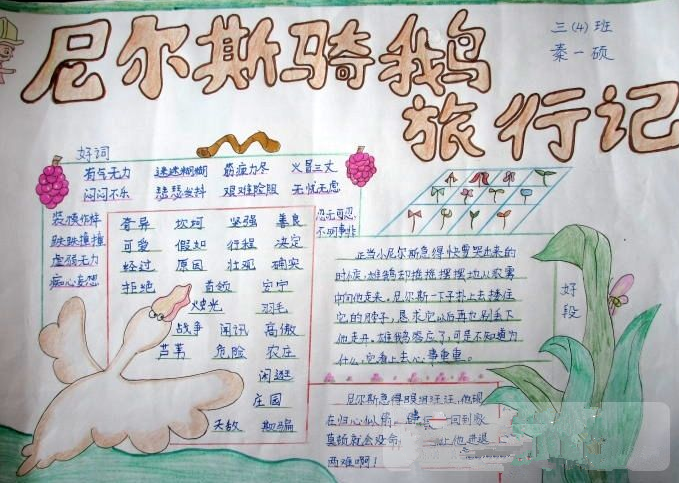 尼尔斯骑鹅
旅行记
三(4)班
秦一硕
好词
有气无力 迷迷糊糊 筋疲力尽 火冒三丈
闷闷不乐 瑟瑟发抖 艰难险阻 无忧无虑
装模作样
跌跌撞撞
虚弱无力
痴心妄想
忍无可忍
不明事非
奇异 坎坷 坚强 善良
可爱 假如 行程 决定
经过 原因 壮观 确实
拒绝 首领 安宁
烛光 羽毛
战争 闻讯 高傲
芦苇 危险 农庄
闲逛
庄园
夫教 欺骗
好段
正当小尼尔斯急得快要哭出来的
时候,雄鹅却摇摇摆摆地从浓雾
中向他走来。尼尔斯一下子扑上去搂住
它的脖子,恳求它以后再也别丢下
他走开。雄鹅答应了,可是不知道为
什么,它看上去心事重重。
尼尔斯急得眼泪汪汪,他现
在归心似箭。 一回到家
莫顿就会没命, 让他进退
两难啊!